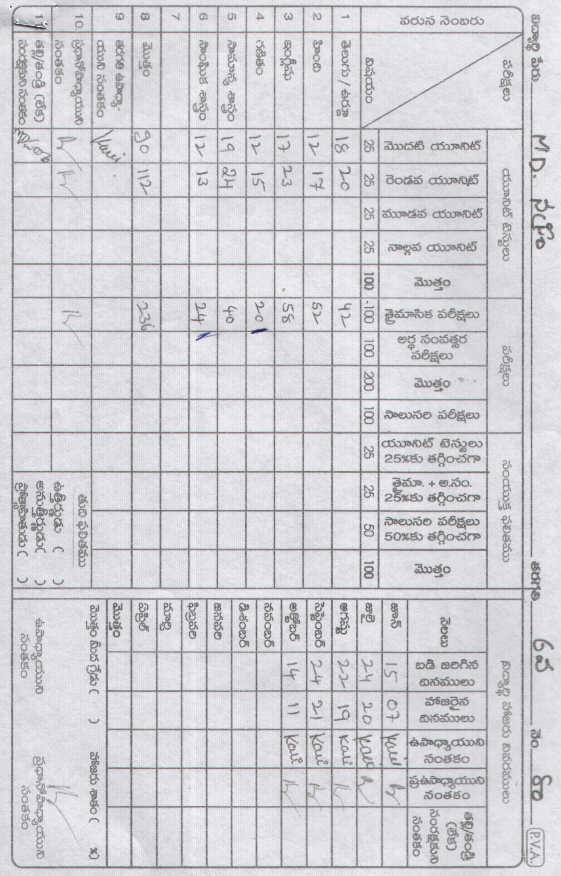 విద్యార్థి పేరు MD. సలీం తరగతి 6వ నెం 80 P.V.A.
వరుస నెంబరు
పరీక్షలు
విషయం
యూనిట్ టెస్టులు
పరీక్షలు
సంయుక్త ఫలితము
మొదటి యూనిట్ 25
రెండవ యూనిట్ 25
మూడవ యూనిట్ 25
నాల్గవ యూనిట్ 25
మొత్తం 100
త్రైమాసిక పరీక్షలు 100
అర్థ సంవత్సర పరీక్షలు 100
మొత్తం 200
సాలుసరి పరీక్షలు 100
యూనిట్ టెస్టులు 25%కు తగ్గించగా 25
త్రైమా. + అ.సం. 25%కు తగ్గించగా 25
సాలుసరి పరీక్షలు 50%కు తగ్గించగా 50
మొత్తం 100
1 తెలుగు / ఉర్దూ 18 20 42
2 హింది 12 17 52
3 ఇంగ్లీషు 17 23 58
4 గణితం 12 15 20
5 సామాన్య శాస్త్రం 19 24 40
6 సాంఘిక శాస్త్రం 12 13 24
7
8 మొత్తం 90 112 236
9 తరగతి ఉపాధ్యా-యుని సంతకం Kavi
10 ప్రధానోపాధ్యాయుని సంతకం
11 తల్లి/తండ్రి (లేక) సంరక్షకుని సంతకం
తుది ఫలితము
ఉత్తీర్ణుడు ( )
అనుత్తీర్ణుడు ( )
ప్రోత్సాహితుడు ( )
విద్యార్థి హాజరు వివరములు
నెలలు
బడి జరిగిన దినములు
హాజరైన దినములు
ఉపాధ్యాయుని సంతకం
ప్రఉపాధ్యాయుని సంతకం
తల్లి/తండ్రి (లేక) సంరక్షకుని సంతకం
జూన్ 15 07 Kavi
జులై 24 20 Kavi
ఆగస్టు 22 19 Kavi
సెప్టెంబర్ 24 21 Kavi
అక్టోబర్ 14 11 Kavi
నవంబర్
డిశంబర్
జనవరి
ఫిబ్రవరి
మార్చి
ఏప్రిల్
మొత్తం
మొత్తం మీద గ్రేడు ( ) హాజరు శాతం ( %)
ఉపాధ్యాయుని సంతకం
ప్రధానోపాధ్యాయుని సంతకం